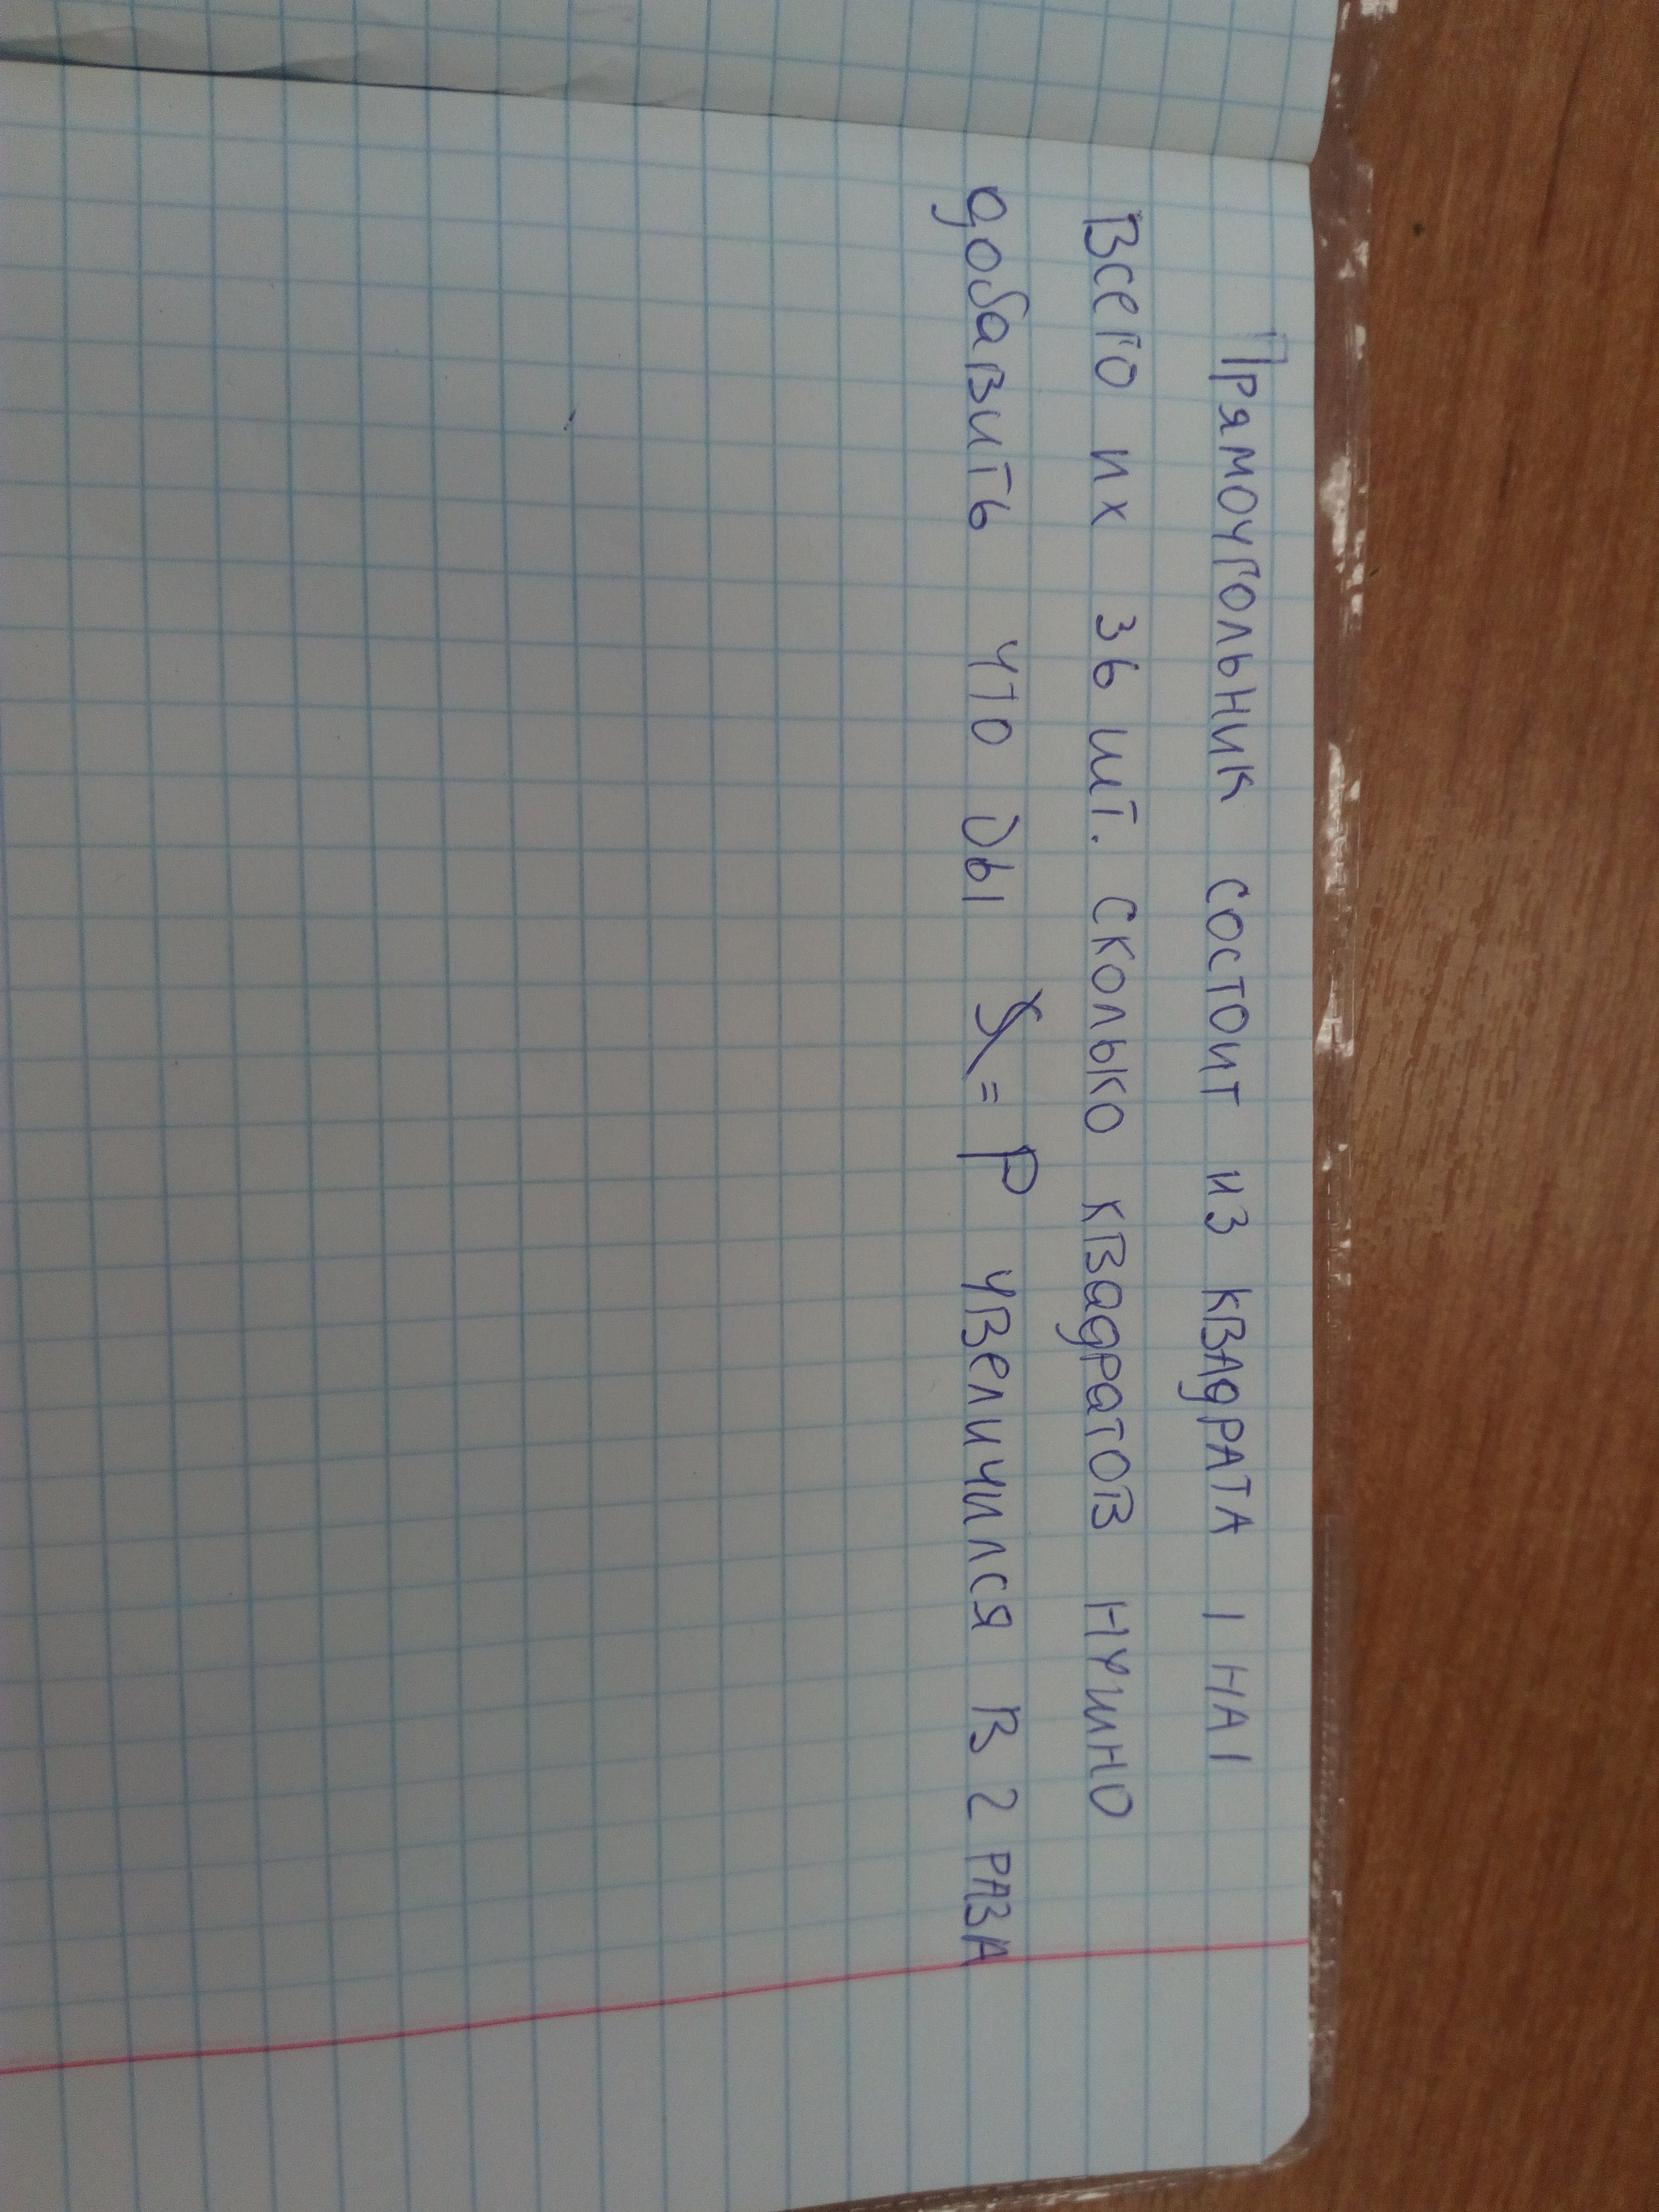 Прямоугольник состоит из квадрата 1 на 1
Всего их 36 шт. Сколько квадратов нужно
добавить что бы = P увеличился в 2 раза